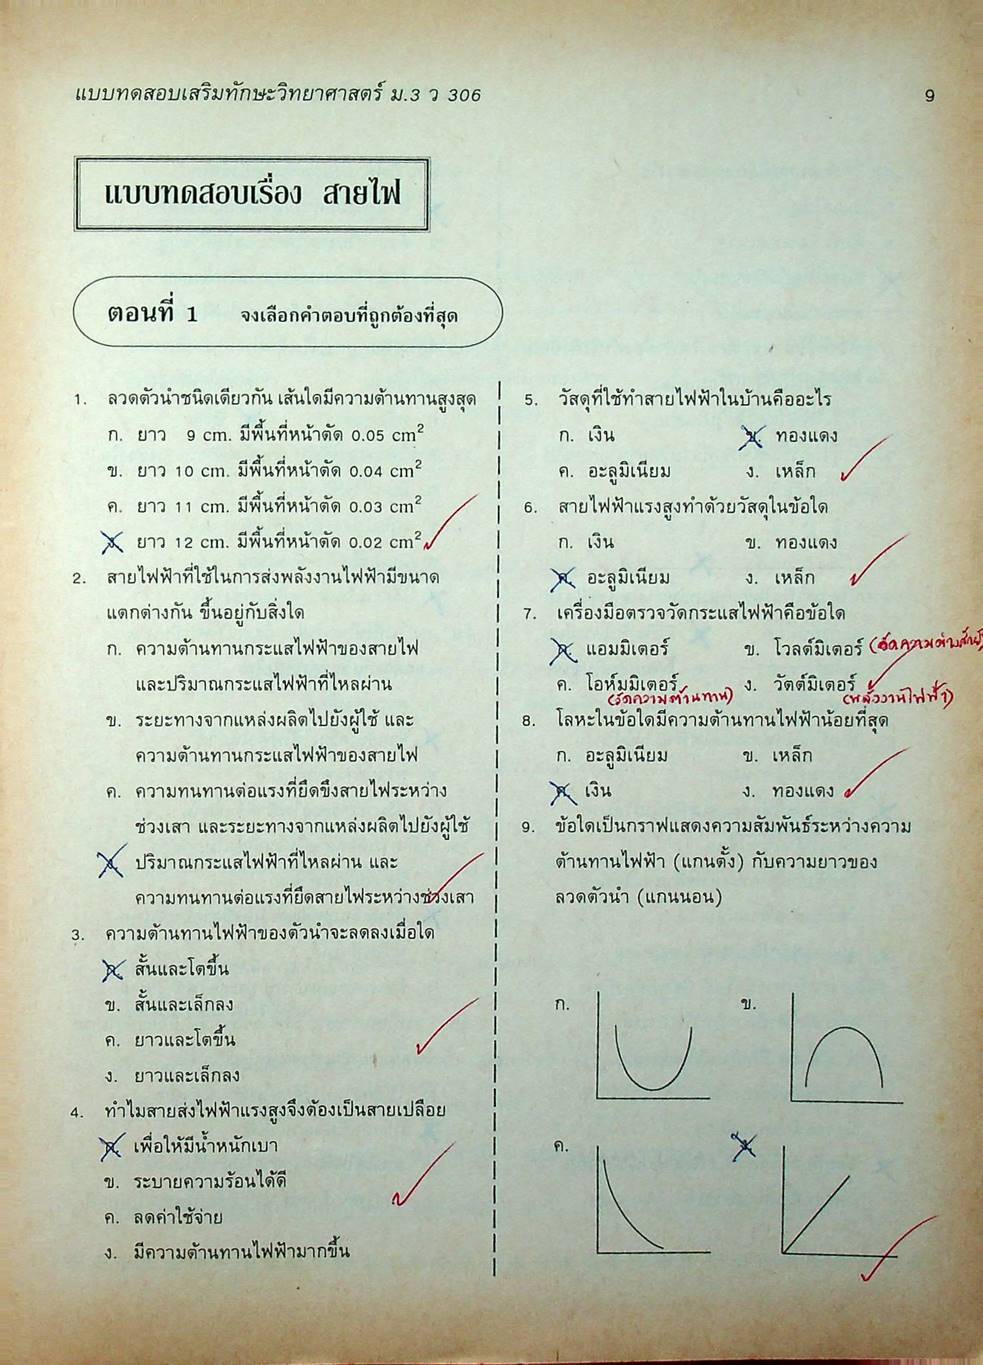 แบบทดสอบเสริมทักษะวิทยาศาสตร์ ม.3 ว 306
9
แบบทดสอบเรื่อง สายไฟ
ตอนที่ 1 จงเลือกคำตอบที่ถูกต้องที่สุด
1. ลวดตัวนำชนิดเดียวกัน เส้นใดมีความต้านทานสูงสุด
ก. ยาว 9 cm. มีพื้นที่หน้าตัด 0.05 cm²
ข. ยาว 10 cm. มีพื้นที่หน้าตัด 0.04 cm²
ค. ยาว 11 cm. มีพื้นที่หน้าตัด 0.03 cm²
ง. ยาว 12 cm. มีพื้นที่หน้าตัด 0.02 cm²
2. สายไฟฟ้าที่ใช้ในการส่งพลังงานไฟฟ้ามีขนาด
แตกต่างกัน ขึ้นอยู่กับสิ่งใด
ก. ความต้านทานกระแสไฟฟ้าของสายไฟ
และปริมาณกระแสไฟฟ้าที่ไหลผ่าน
ข. ระยะทางจากแหล่งผลิตไปยังผู้ใช้ และ
ความต้านทานกระแสไฟฟ้าของสายไฟ
ค. ความทนทานต่อแรงที่ยึดขึงสายไฟระหว่าง
ช่วงเสา และระยะทางจากแหล่งผลิตไปยังผู้ใช้
ง. ปริมาณกระแสไฟฟ้าที่ไหลผ่าน และ
ความทนทานต่อแรงที่ยึดสายไฟระหว่างช่วงเสา
3. ความต้านทานไฟฟ้าของตัวนำจะลดลงเมื่อใด
ก. สั้นและโตขึ้น
ข. สั้นและเล็กลง
ค. ยาวและโตขึ้น
ง. ยาวและเล็กลง
4. ทำไมสายส่งไฟฟ้าแรงสูงจึงต้องเป็นสายเปลือย
ก. เพื่อให้มีน้ำหนักเบา
ข. ระบายความร้อนได้ดี
ค. ลดค่าใช้จ่าย
ง. มีความต้านทานไฟฟ้ามากขึ้น
5. วัสดุที่ใช้ทำสายไฟฟ้าในบ้านคืออะไร
ก. เงิน ข. ทองแดง
ค. อะลูมิเนียม ง. เหล็ก
6. สายไฟฟ้าแรงสูงทำด้วยวัสดุในข้อใด
ก. เงิน ข. ทองแดง
ค. อะลูมิเนียม ง. เหล็ก
7. เครื่องมือตรวจวัดกระแสไฟฟ้าคือข้อใด
ก. แอมมิเตอร์ ข. โวลต์มิเตอร์ (วัดความต่างศักย์)
ค. โอห์มมิเตอร์ ง. วัตต์มิเตอร์
(วัดความต้านทาน) (พลังงานไฟฟ้า)
8. โลหะในข้อใดมีความต้านทานไฟฟ้าน้อยที่สุด
ก. อะลูมิเนียม ข. เหล็ก
ค. เงิน ง. ทองแดง
9. ข้อใดเป็นกราฟแสดงความสัมพันธ์ระหว่างความ
ต้านทานไฟฟ้า (แกนตั้ง) กับความยาวของ
ลวดตัวนำ (แกนนอน)
ก. ข.
ค. ง.